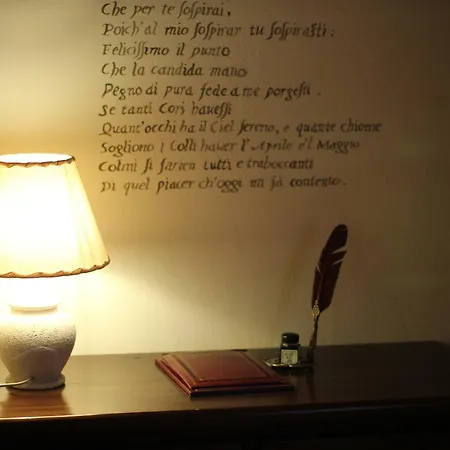 Che per te ſoſpirai,
Poich'al mio ſoſpirar tu ſoſpiraſti:
Feliciſſimo il punto
Che la candida mano
Pegno di pura fede a me porgeſti.
Se tanti Cori haueſſi
Quant'occhi ha il Ciel ſereno, e quante chiome
Sogliono i Colli hauer l'Aprile e'l Maggio
Colmi ſi farien tutti e traboccanti
Di quel piacer ch'oggi mi fà contento.